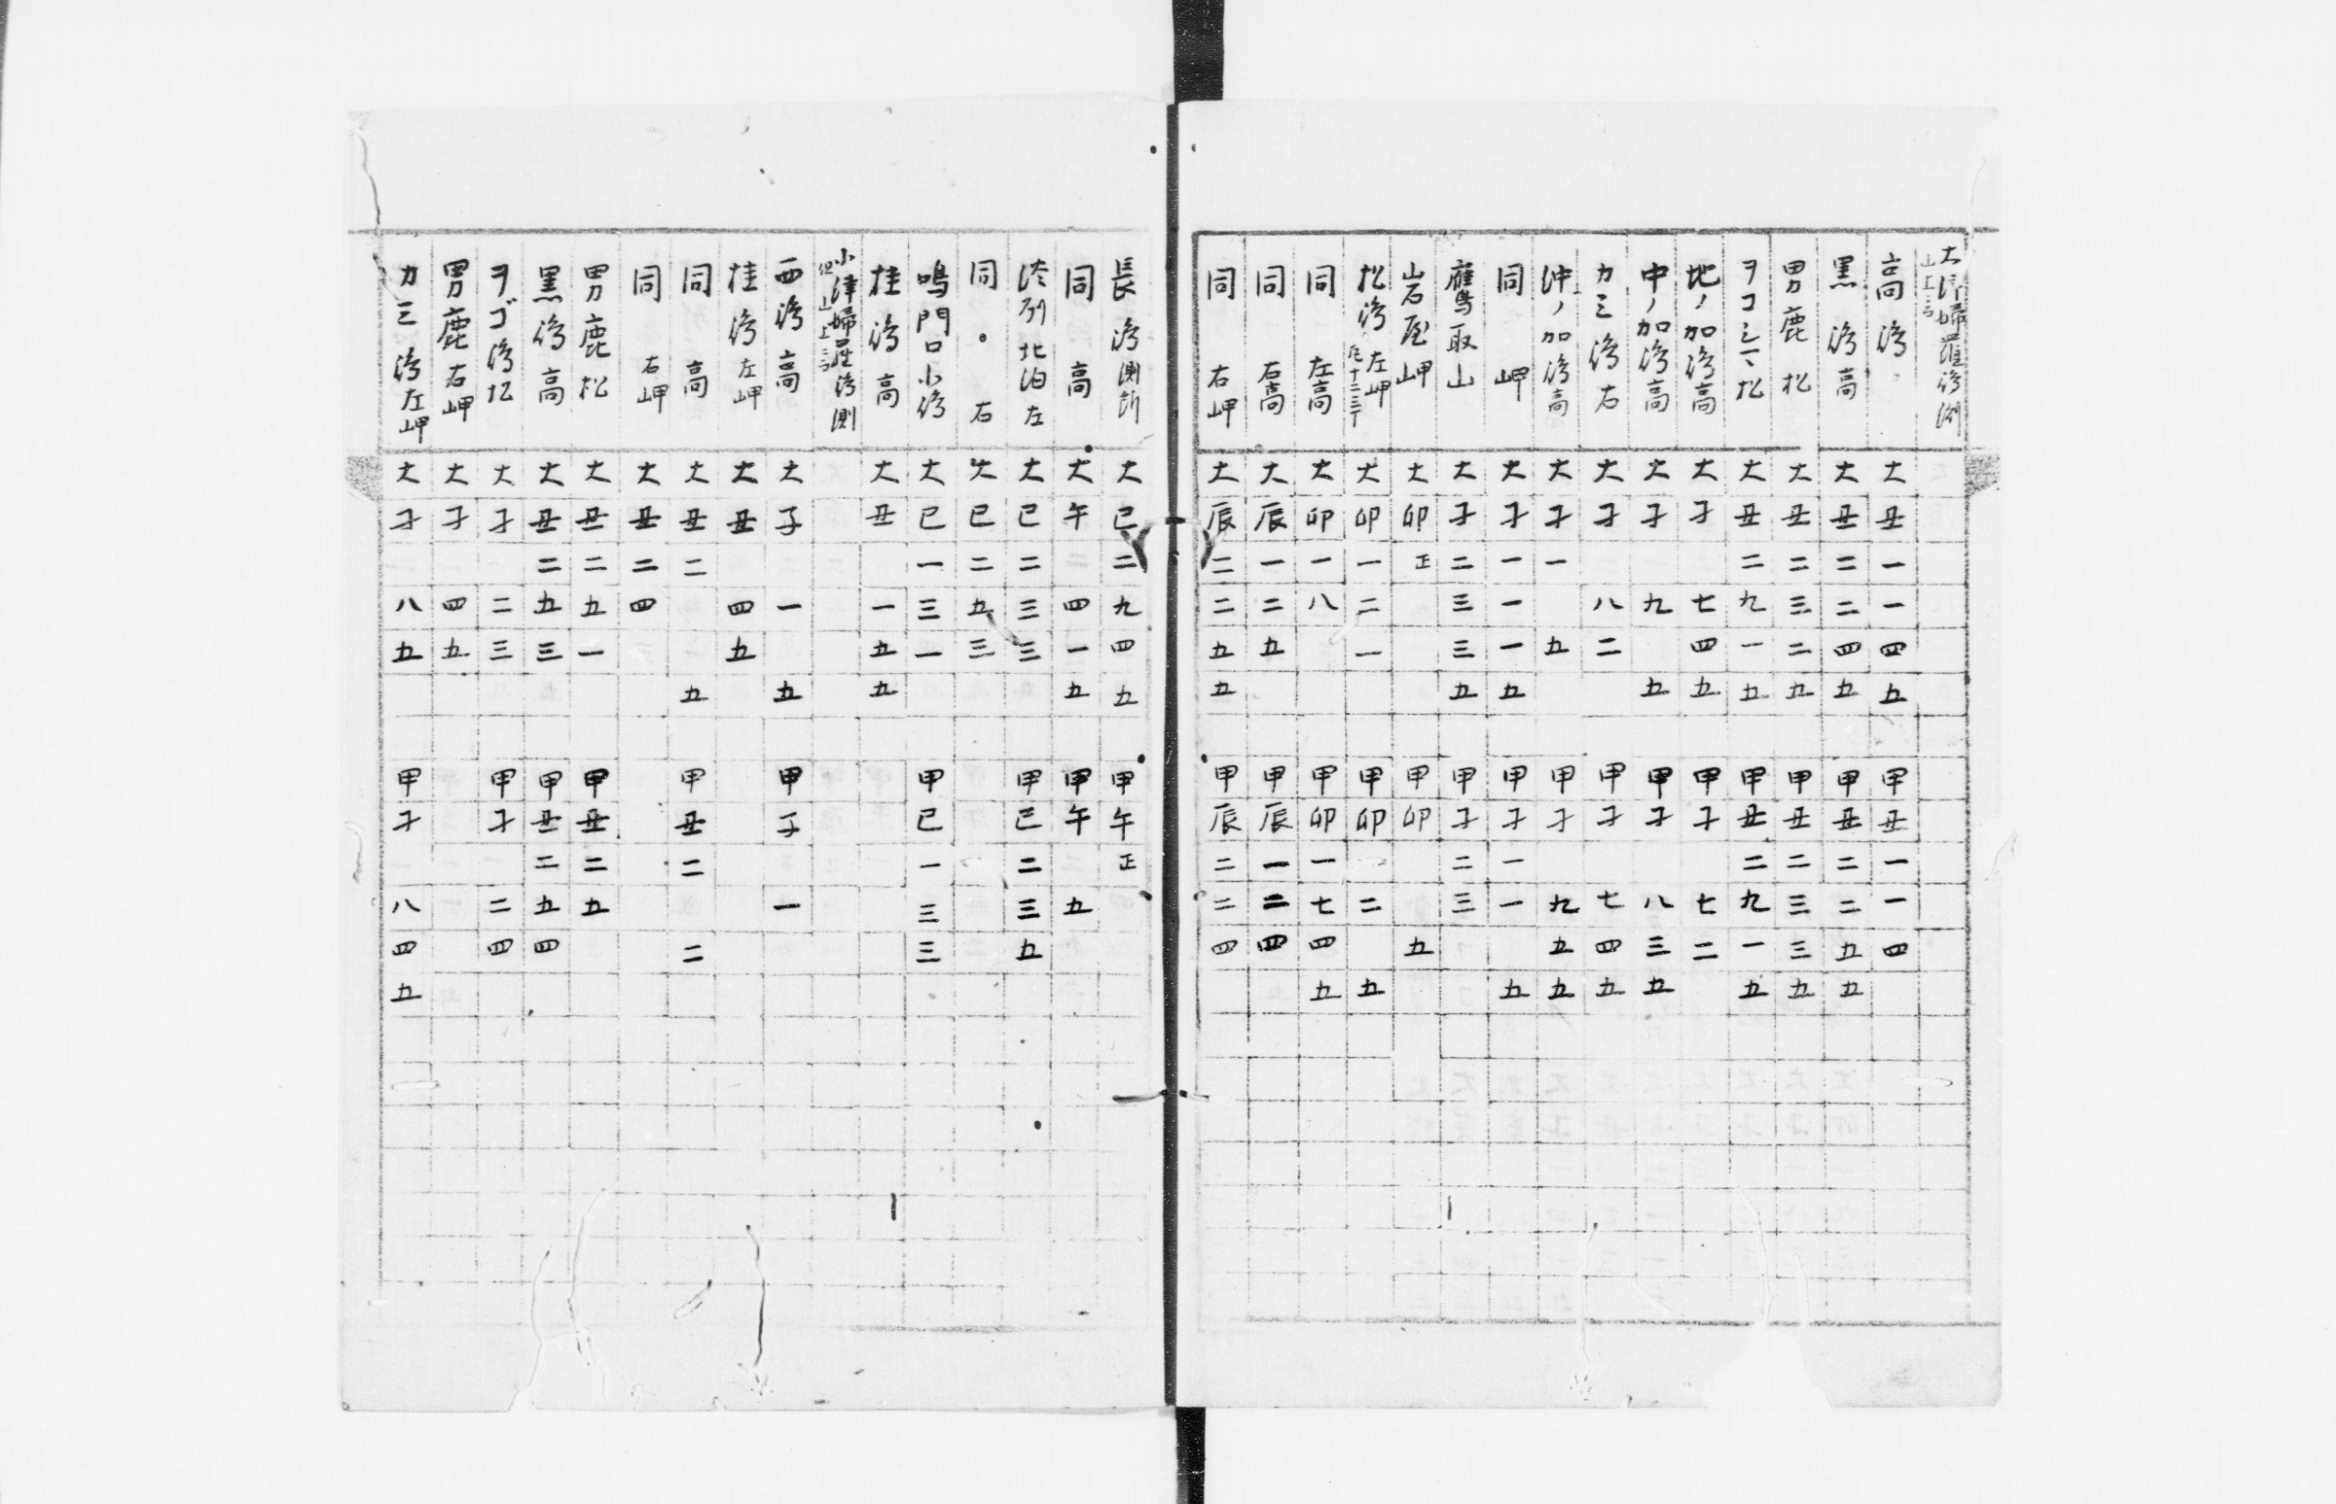 大津婦羅泻測
山上ニ而
高泻 大丑一一四五 甲丑一一四
黒泻高 大丑二二四五 甲丑二二五五
男鹿松 大丑二三二五 甲丑二三三五
大丑二九一五 甲丑二九一五
地ノ加泻高 大子七四五 甲子七二
中ノ加泻高 大子九五 甲子八三五
カミ泻右 大子八二 甲子七四五
沖ノ加泻高 大子一五 甲子九五五
同岬 大子一一一五 甲子一一五
鷹取山 大子二三三五 甲子二三
岩屋岬 大卯正 甲卯五
松泻左岬 大卯一二一 甲卯二五
同左高 大卯一八 甲卯一七四五
同右高 大辰一二五 甲辰一二四
同右岬 大辰二二五五 甲辰二二四
長泻測所 大巳二九四五 甲午正
同高 大午四一五 甲午五
北泊左 大巳二三三 甲巳二三五
同右 大巳二五三
鳴門口小泻 大巳一三一 甲巳一三三
桂泻高 大丑一五五
小津婦羅泻測
但山上ニ而
西泻高 大子一五 甲子一
桂泻左岬 大丑四五
同高 大丑二五 甲丑二二
同右岬 大丑二四
男鹿松 大丑二五一 甲丑二五
黒泻高 大丑二五三 甲丑二五四
ヲゴ泻松 大子二三 甲子二四
男鹿右岬 大子四五
カミ泻左岬 大子八五 甲子八四五